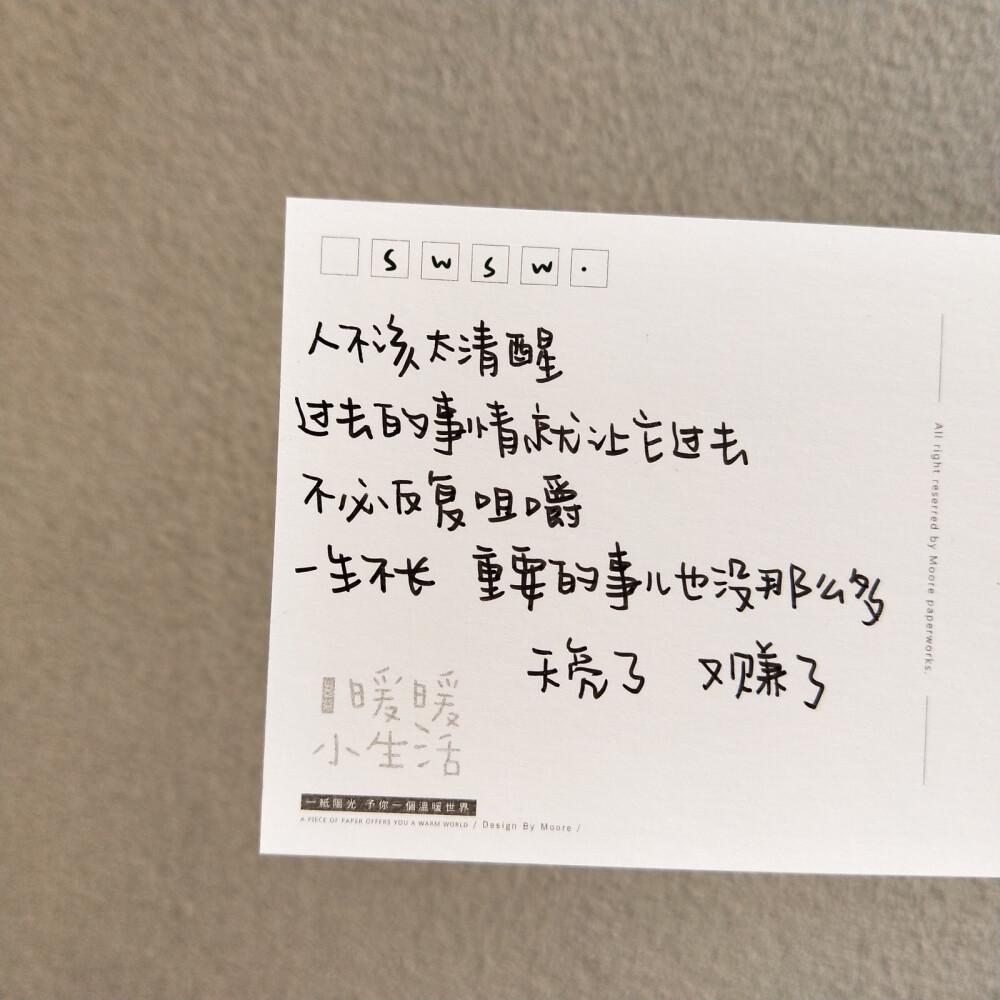 s w s w .
人不该太清醒
过去的事情就让它过去
不必反复咀嚼
一生不长 重要的事儿也没那么多
天亮了 又赚了
暖暖
小生活
一紙陽光 予你一個溫暖世界
A PIECE OF PAPER OFFERS YOU A WARM WORLD / Design By Moore /
All right reserred by Moore paperworks.